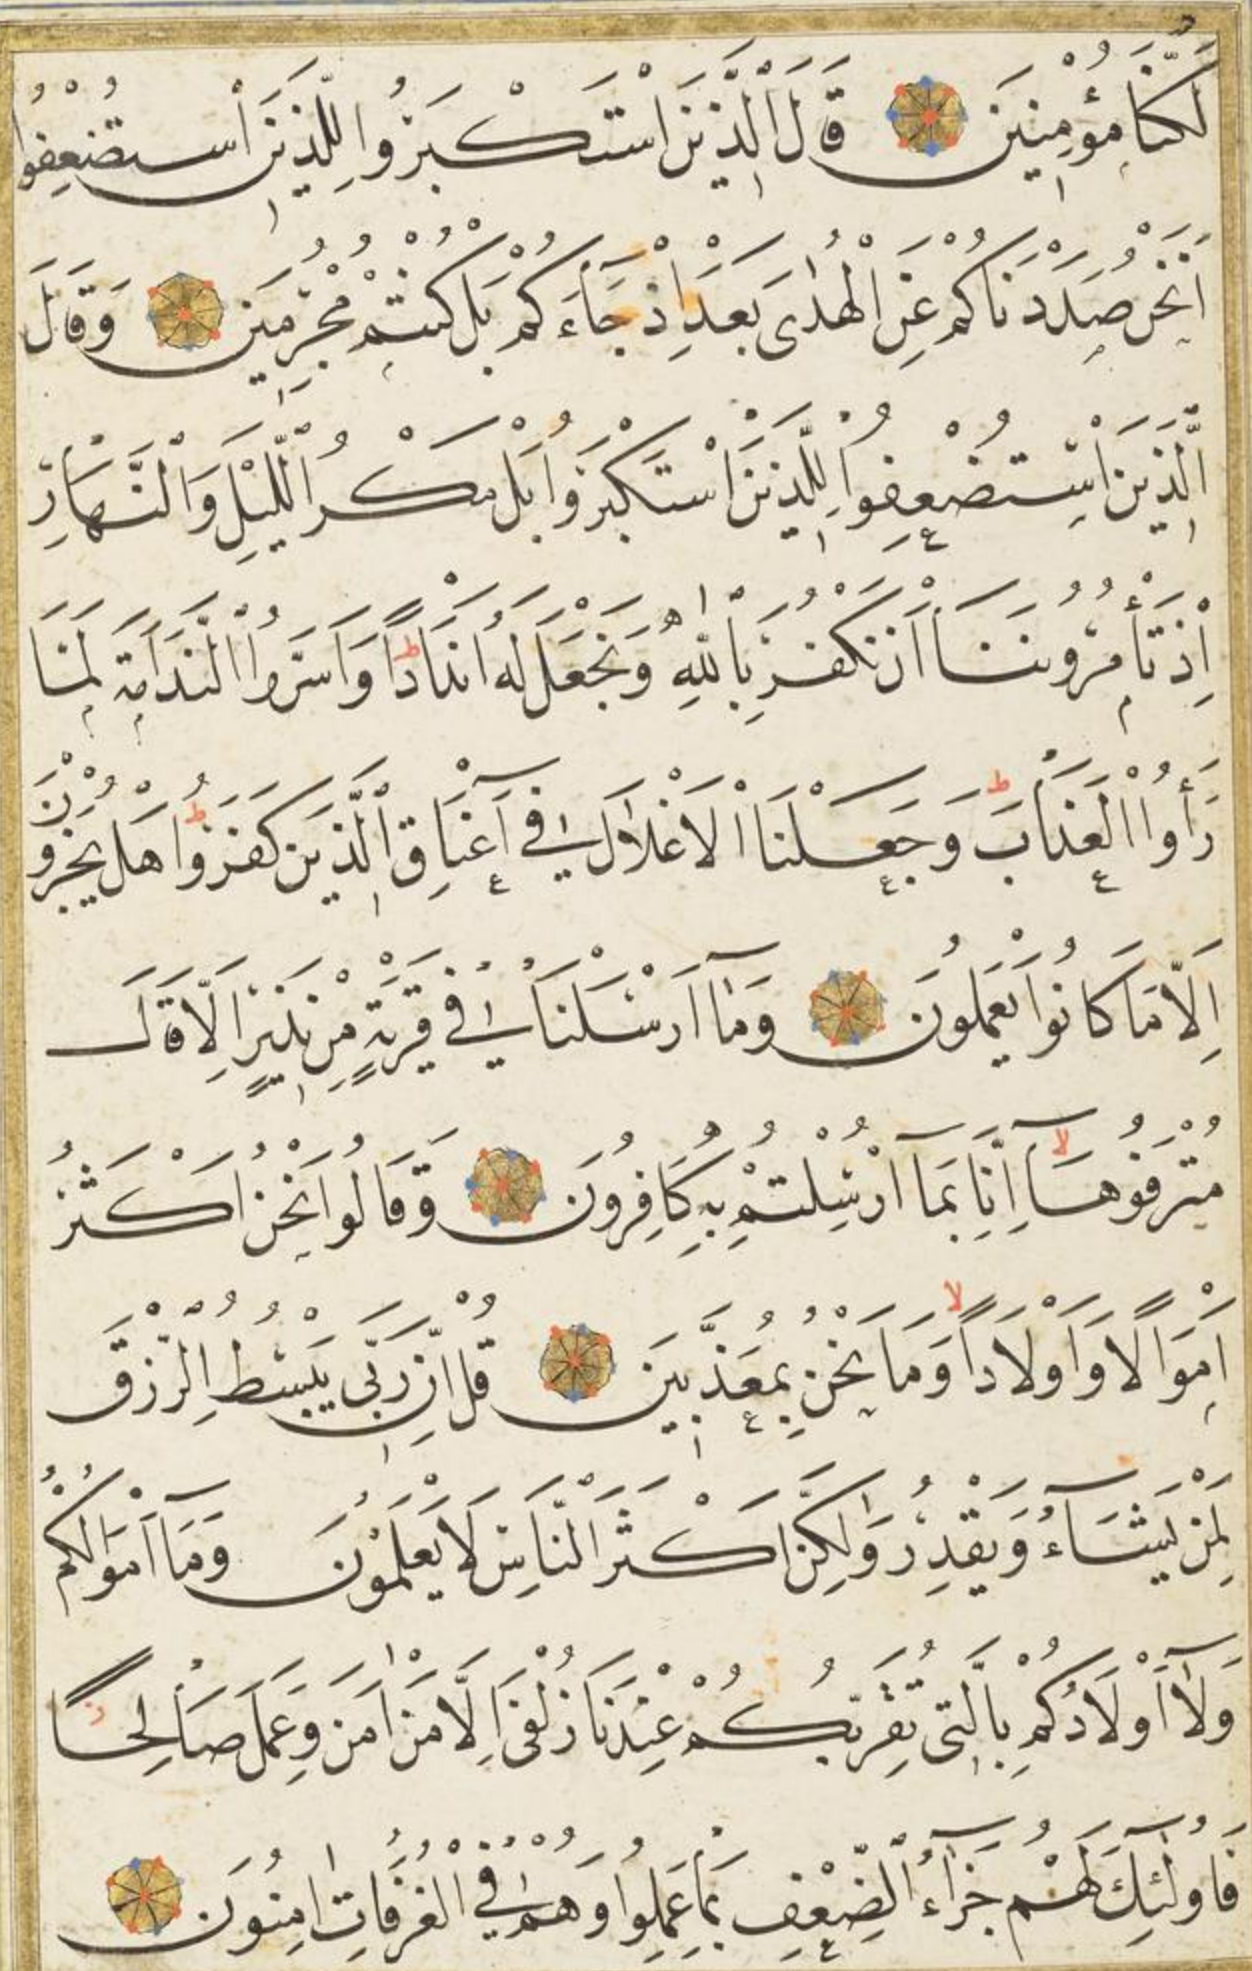 لَكُنَّا مُؤْمِنِينَ قَالَ الَّذِينَ اسْتَكْبَرُوا لِلَّذِينَ اسْتُضْعِفُوا
أَنَحْنُ صَدَدْنَاكُمْ عَنِ الْهُدٰى بَعْدَ اِذْ جَاءَكُمْ بَلْ كُنْتُمْ مُجْرِمِينَ وَقَالَ
الَّذِينَ اسْتُضْعِفُوا لِلَّذِينَ اسْتَكْبَرُوا بَلْ مَكْرُ اللَّيْلِ وَالنَّهَارِ
اِذْ تَأْمُرُونَنَا اَنْ نَكْفُرَ بِاللّٰهِ وَنَجْعَلَ لَهُ اَنْدَادًا ط وَاَسَرُّوا النَّدَامَةَ لَمَّا
رَأَوُا الْعَذَابَ ط وَجَعَلْنَا الْاَغْلَالَ فِي اَعْنَاقِ الَّذِينَ كَفَرُوا ط هَلْ يُجْزَوْنَ
اِلَّا مَا كَانُوا يَعْمَلُونَ وَمَا اَرْسَلْنَا فِي قَرْيَةٍ مِنْ نَذِيرٍ اِلَّا قَالَ
مُتْرَفُوهَا لا اِنَّا بِمَا اُرْسِلْتُمْ بِهِ كَافِرُونَ وَقَالُوا نَحْنُ اَكْثَرُ
اَمْوَالًا وَاَوْلَادًا لا وَمَا نَحْنُ بِمُعَذَّبِينَ قُلْ اِنَّ رَبِّي يَبْسُطُ الرِّزْقَ
لِمَنْ يَشَاءُ وَيَقْدِرُ وَلٰكِنَّ اَكْثَرَ النَّاسِ لَا يَعْلَمُونَ وَمَا اَمْوَالُكُمْ
وَلَا اَوْلَادُكُمْ بِالَّتِي تُقَرِّبُكُمْ عِنْدَنَا زُلْفٰى اِلَّا مَنْ اٰمَنَ وَعَمِلَ صَالِحًا
فَاُولٰئِكَ لَهُمْ جَزَاءُ الضِّعْفِ بِمَا عَمِلُوا وَهُمْ فِي الْغُرُفَاتِ اٰمِنُونَ